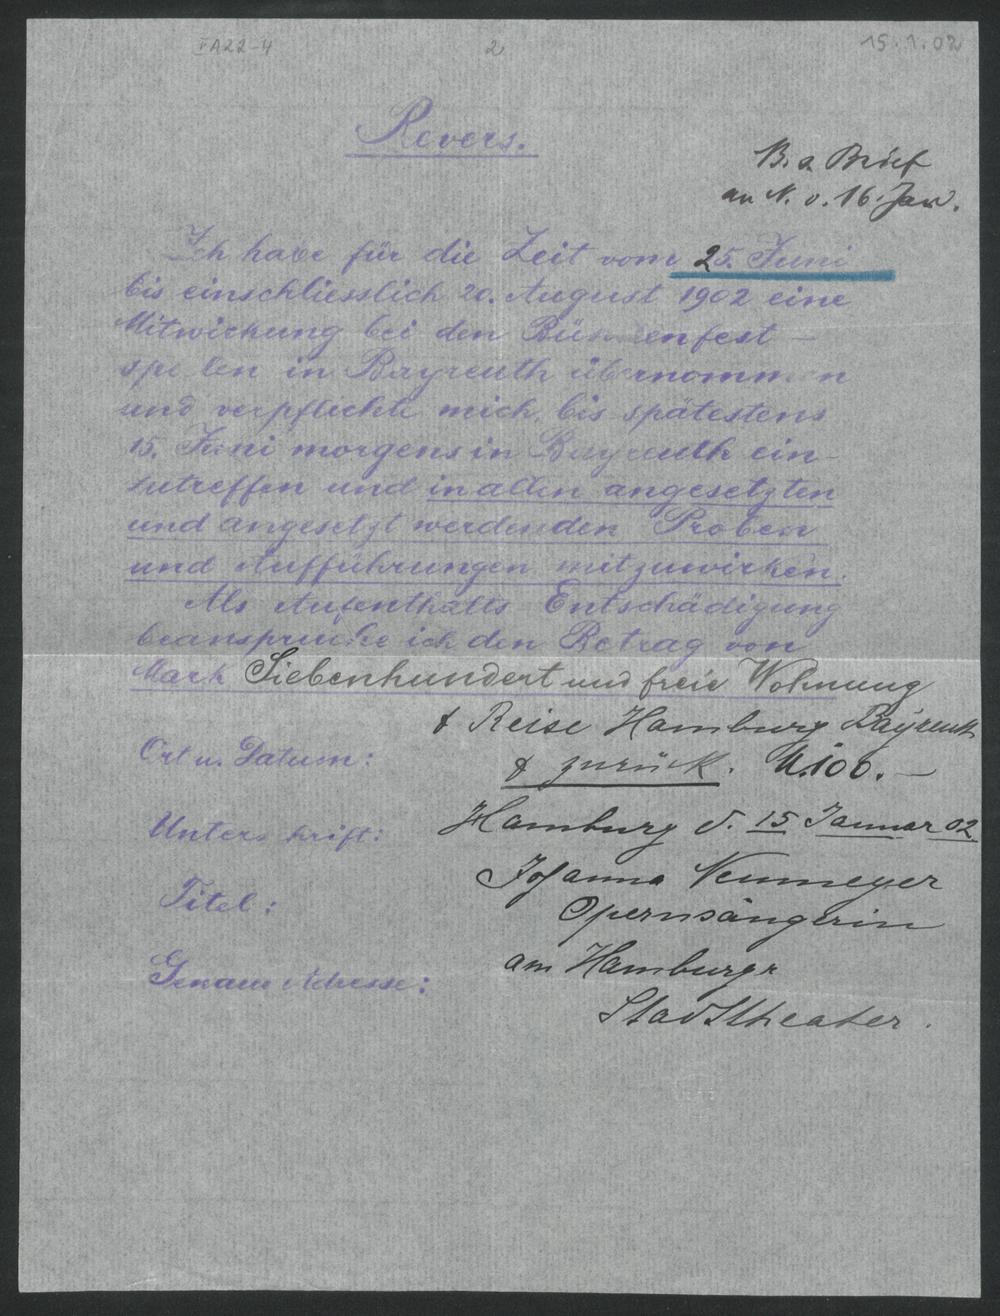 VA22-4 2 15.1.02
Revers.
B. a. Brief
an N. v. 16. Jan.
Ich habe für die Zeit vom 25. Juni
bis einschliesslich 20. August 1902 eine
Mitwirkung bei den Bühnenfest-
spielen in Bayreuth übernommen
und verpflichte mich, bis spätestens
15. Juni morgens in Bayreuth ein-
zutreffen und in allen angesetzten
und angesetzt werdenden Proben
und Aufführungen mitzuwirken.
Als Aufenthalts Entschädigung
beanspruche ich den Betrag von
Mark Siebenhundert und freie Wohnung
& Reise Hamburg Bayreuth
& zurück. M. 100.—
Ort u. Datum:
Hamburg d. 15 Januar 02.
Unterschrift:
Johanna Neumeyer
Titel:
Opernsängerin
am Hamburgr
Genaue Adresse:
Stadttheater.